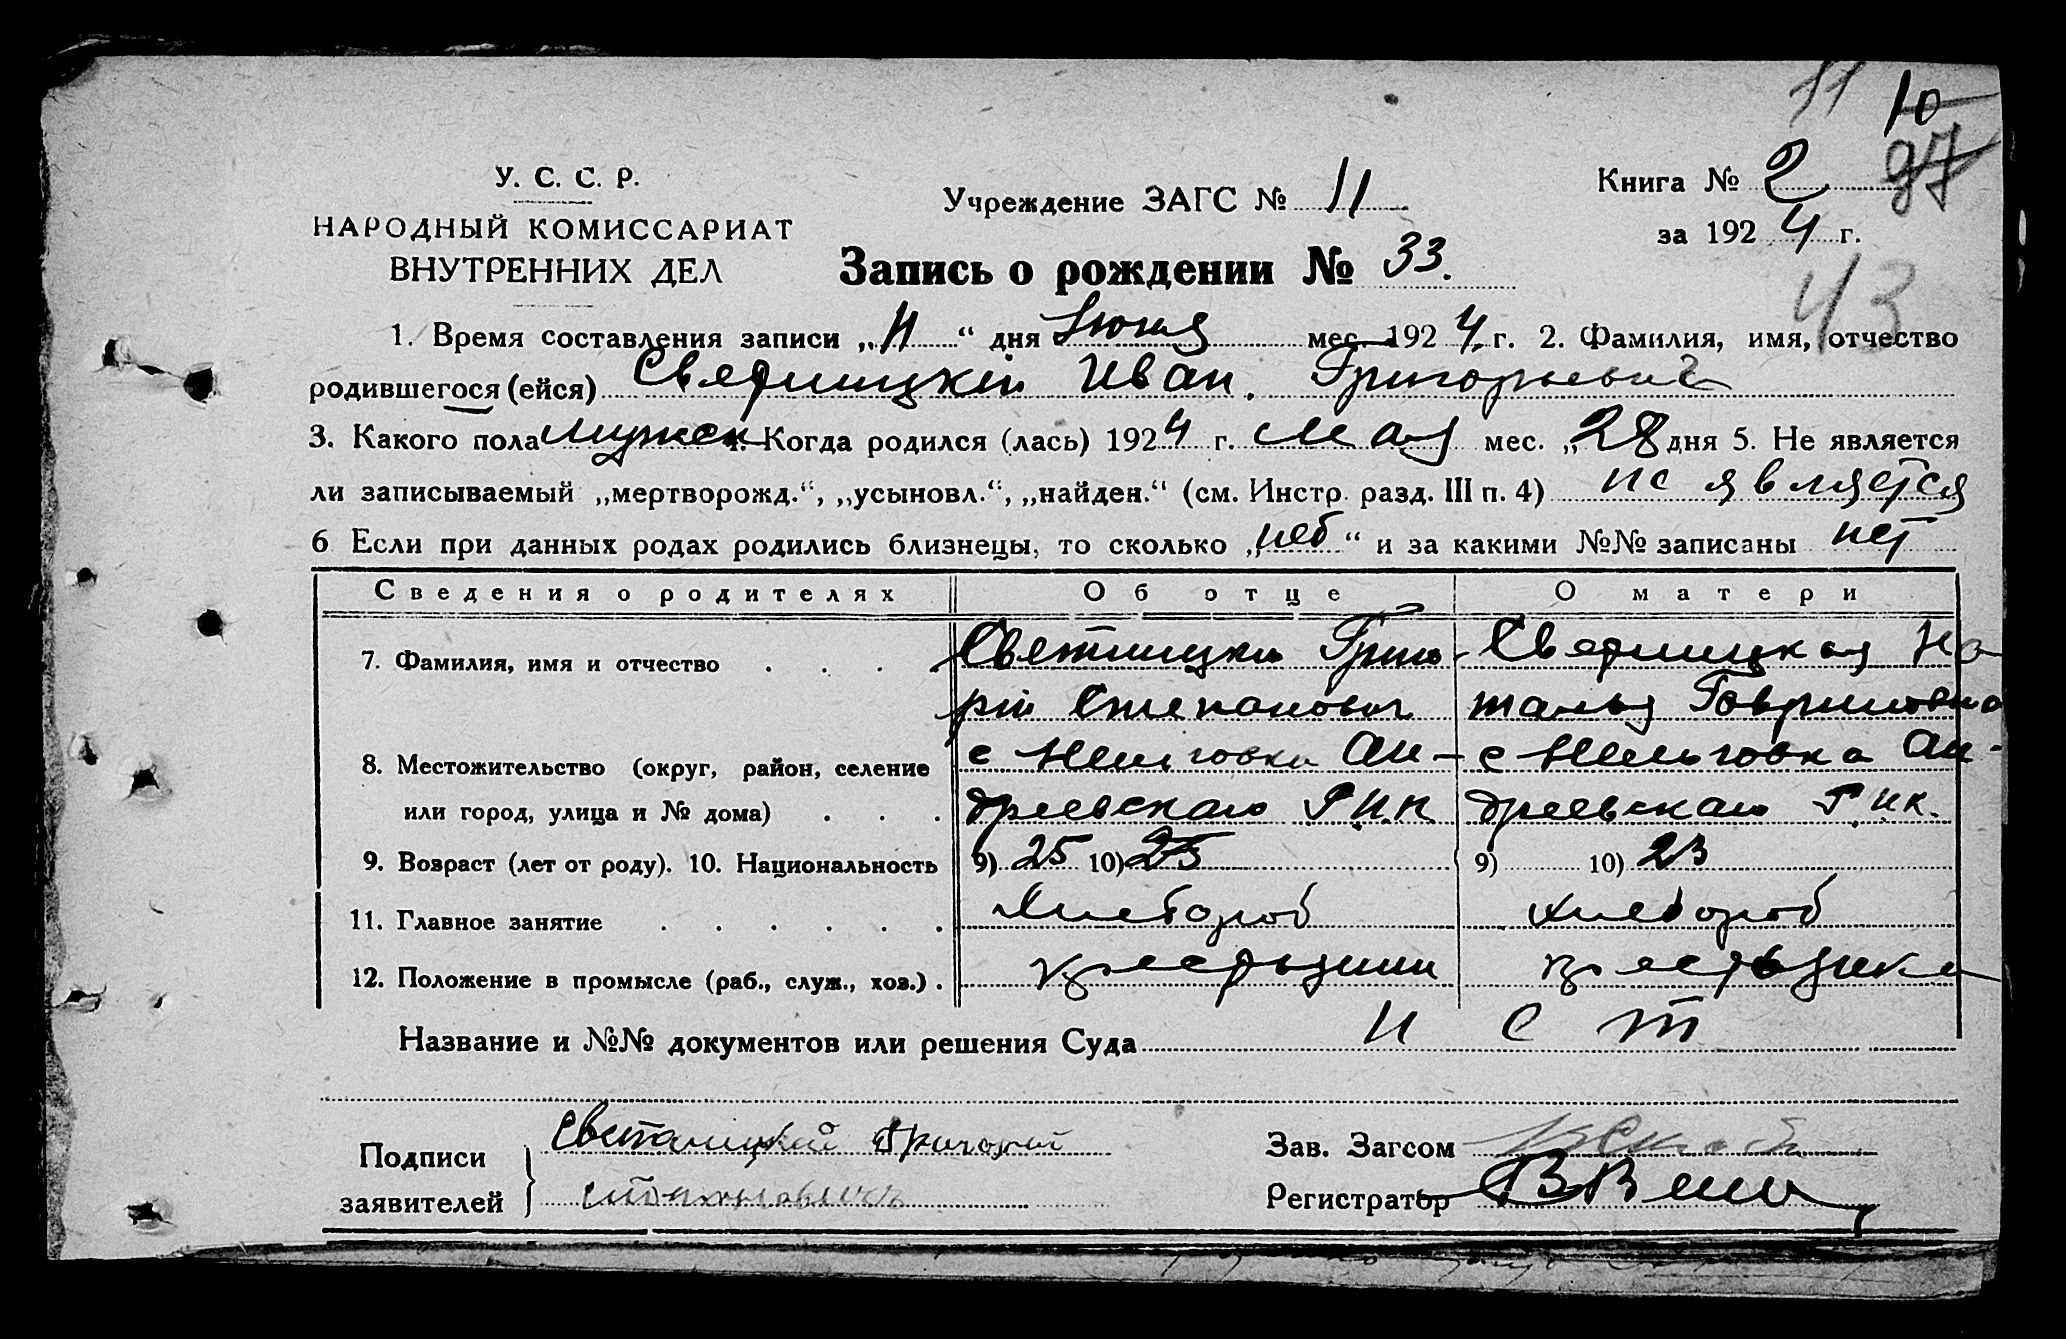 11 10
97
У. С. С. Р.
НАРОДНЫЙ КОМИССАРИАТ
ВНУТРЕННИХ ДЕЛ
Учреждение ЗАГС № 11
Книга № 2
за 1924 г.
Запись о рождении № 33.
43
1. Время составления записи „11“ дня Июня мес. 1924 г. 2. Фамилия, имя, отчество
родившегося (ейся) Иван Григорьевич
3. Какого пола мужск 4. Когда родился (лась) 1924 г. мая мес. „28 дня 5. Не является
ли записываемый „мертворожд.“, „усыновл.“, „найден.“ (см. Инстр. разд. III п. 4) не является
6 Если при данных родах родились близнецы, то сколько „ “ и за какими №№ записаны нет
Сведения о родителях Об отце О матери
7. Фамилия, имя и отчество . . . . Григо- На
рій Степанович талья
8. Местожительство (округ, район, селение с Ан- с Ан-
или город, улица и № дома) . . . дреевскаго Р.И.К дреевскаго Р.И.К.
9. Возраст (лет от роду). 10. Национальность 9) 25 10) 25 9) 10) 23
11. Главное занятие . . . . . . Хлебороб хлебороб
12. Положение в промысле (раб., служ., хоз.) .
Название и №№ документов или решения Суда нет
Подписи
заявителей
Григорий
Зав. Загсом
Регистратор